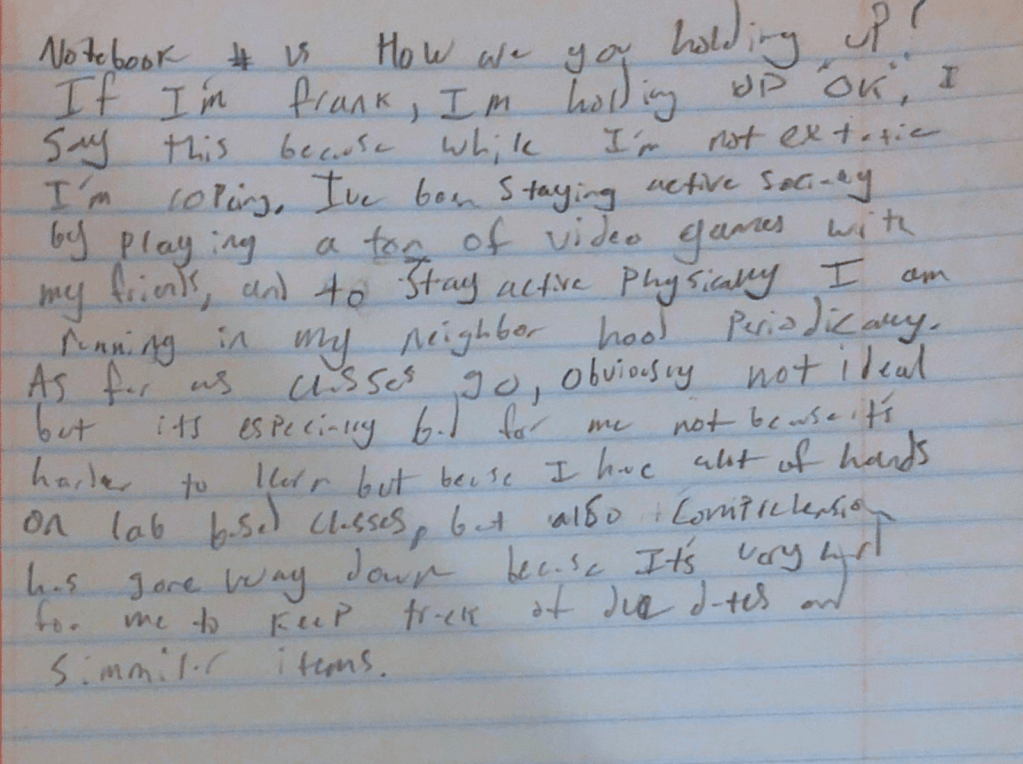 Notebook # How are you holding up?
If I'm frank, I'm holding up "OK", I
Say this because while I'm not extatic
I'm coping. I've been staying active socialy
by playing a ton of video games with
my friends, and to stay active physically I am
running in my neighbor hood Periodically.
As far as classes go, obviously not ideal
but its especially bad for me not because it's
harder to learn but becuse I have alot of hands
on lab based classes, but also comprehension
has gone way down because It's very hard
for me to keep track of due dates and
simmilar items.